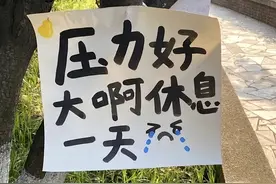 压力好
大啊休息
一天